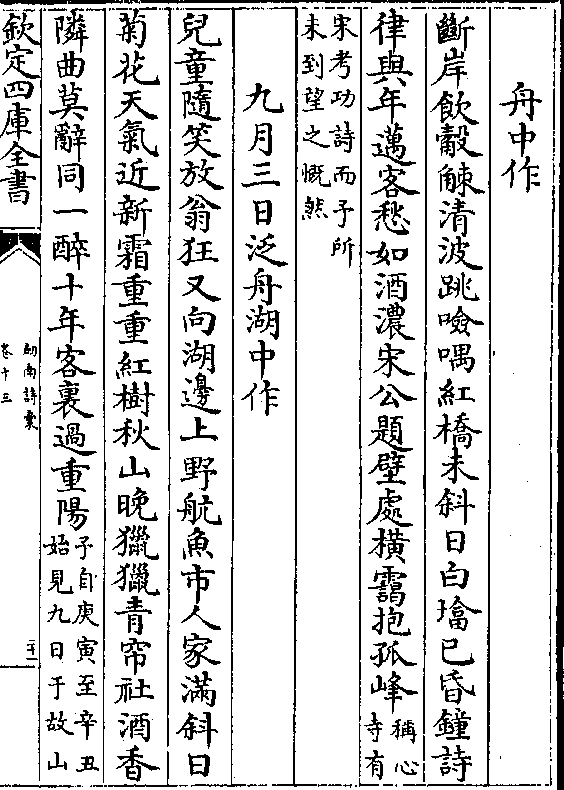 舟中作
斷岸飲觳觫清波跳噞喁紅橋未斜日白墖已昏鐘詩
律與年邁客愁如酒濃宋公題壁處橫靄抱孤峰稱心寺有
宋考功詩而予所
未到望之慨然
九月三日泛舟湖中作
兒童隨笑放翁狂又向湖邊上野航魚市人家滿斜日
菊花天氣近新霜重重紅樹秋山晚獵獵青帘社酒香
隣曲莫辭同一醉十年客裏過重陽予自庚寅至辛丑
始見九日于故山
欽定四庫全書
劍南詩稾
卷十三